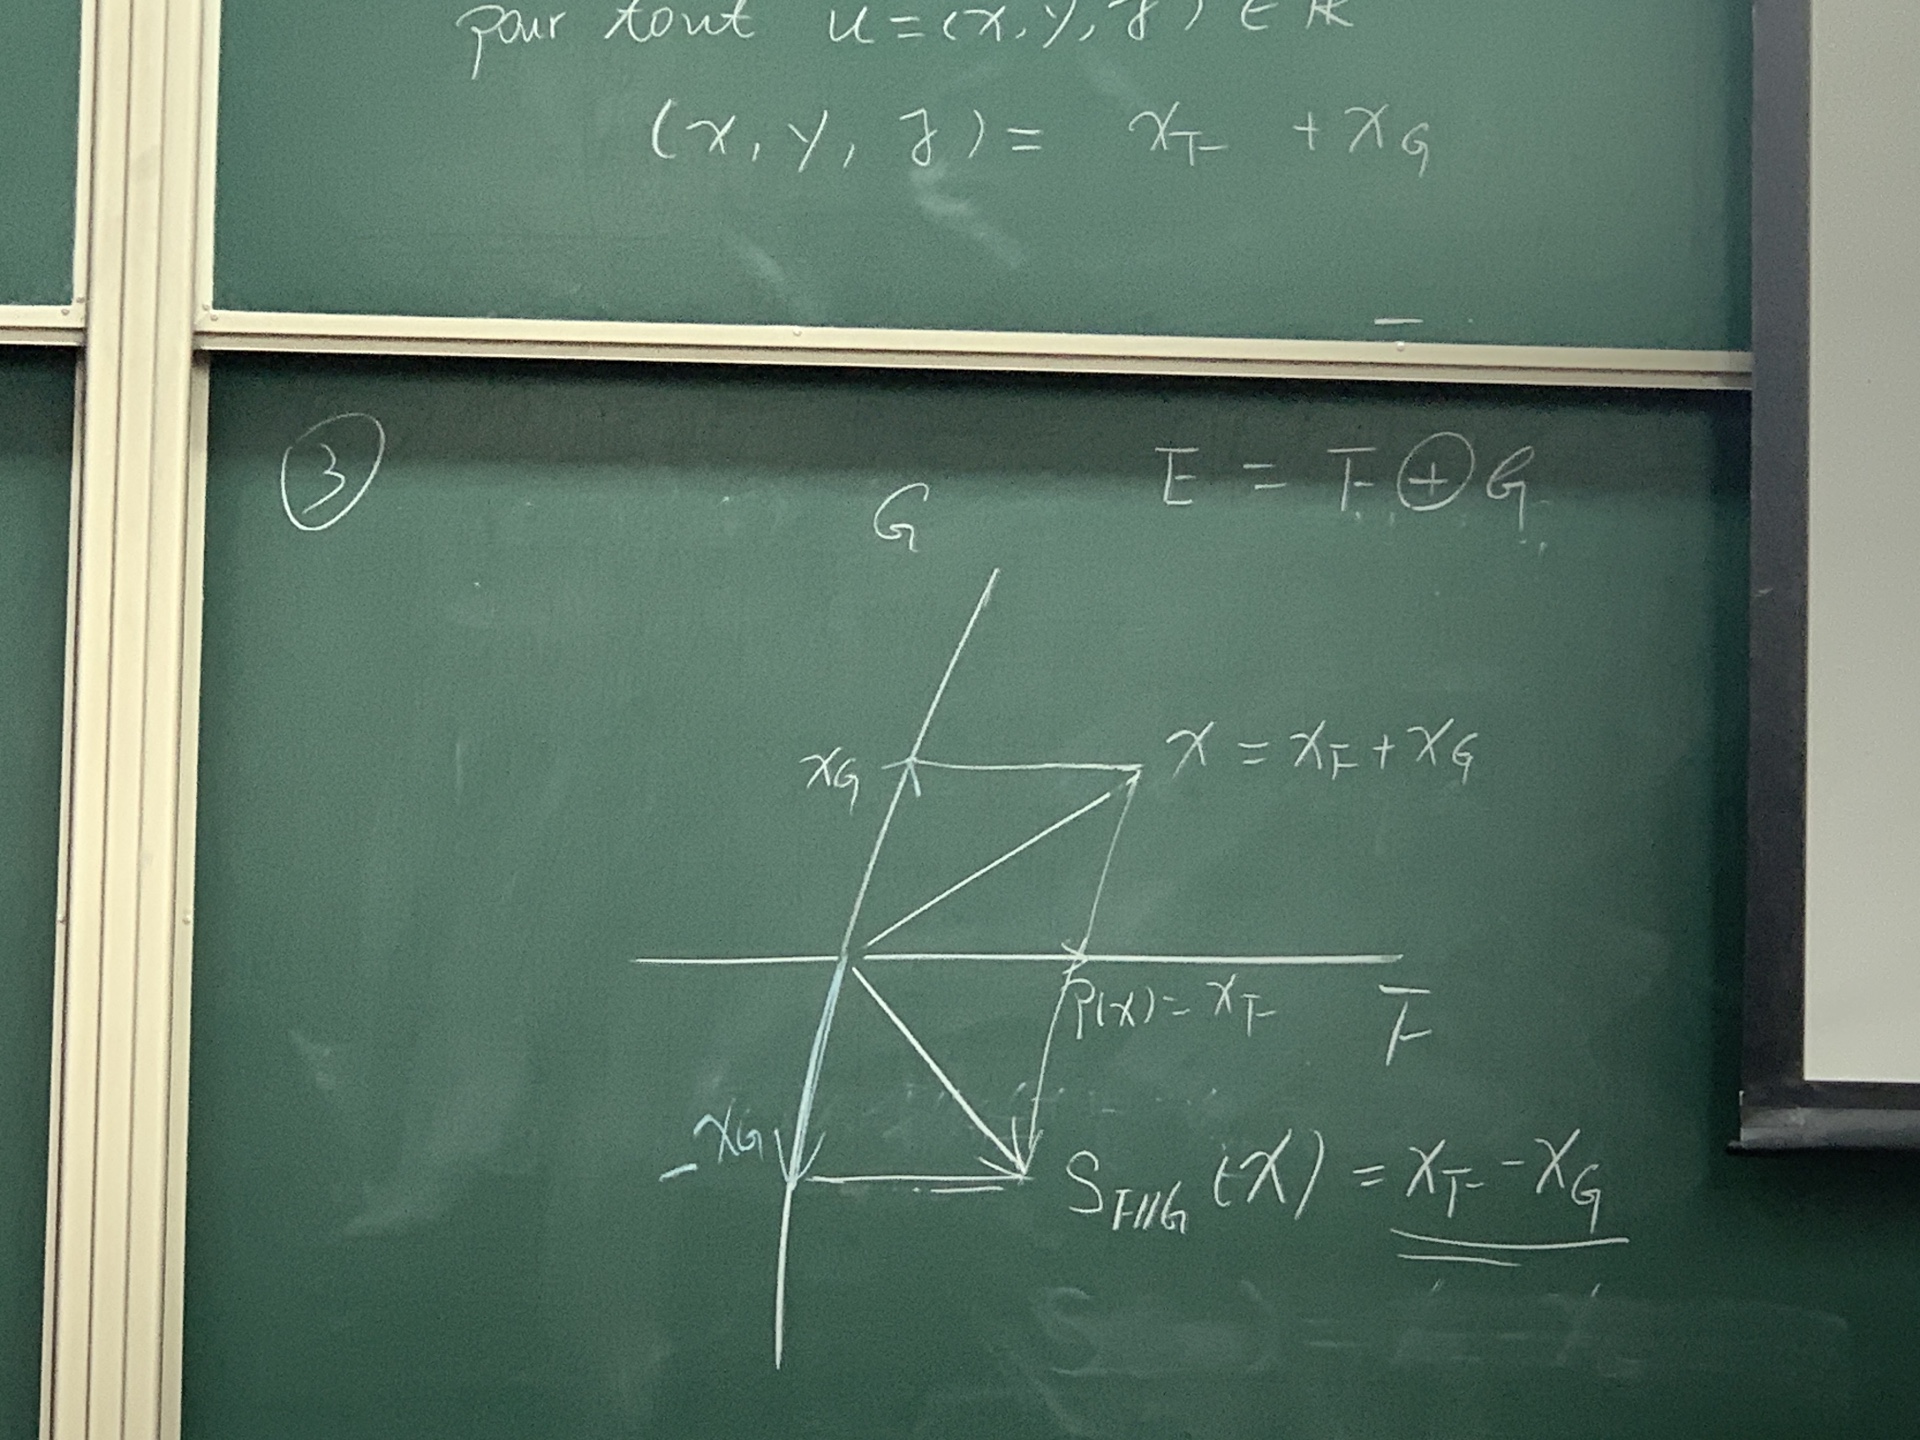 pour tout u = (x, y, z) ∈
(x, y, z) = x_F + x_G
③
E = F ⊕ G
G
x_G
x = x_F + x_G
p(x) = x_F
F
-x_G
S_{F//G} (x) = x_F - x_G